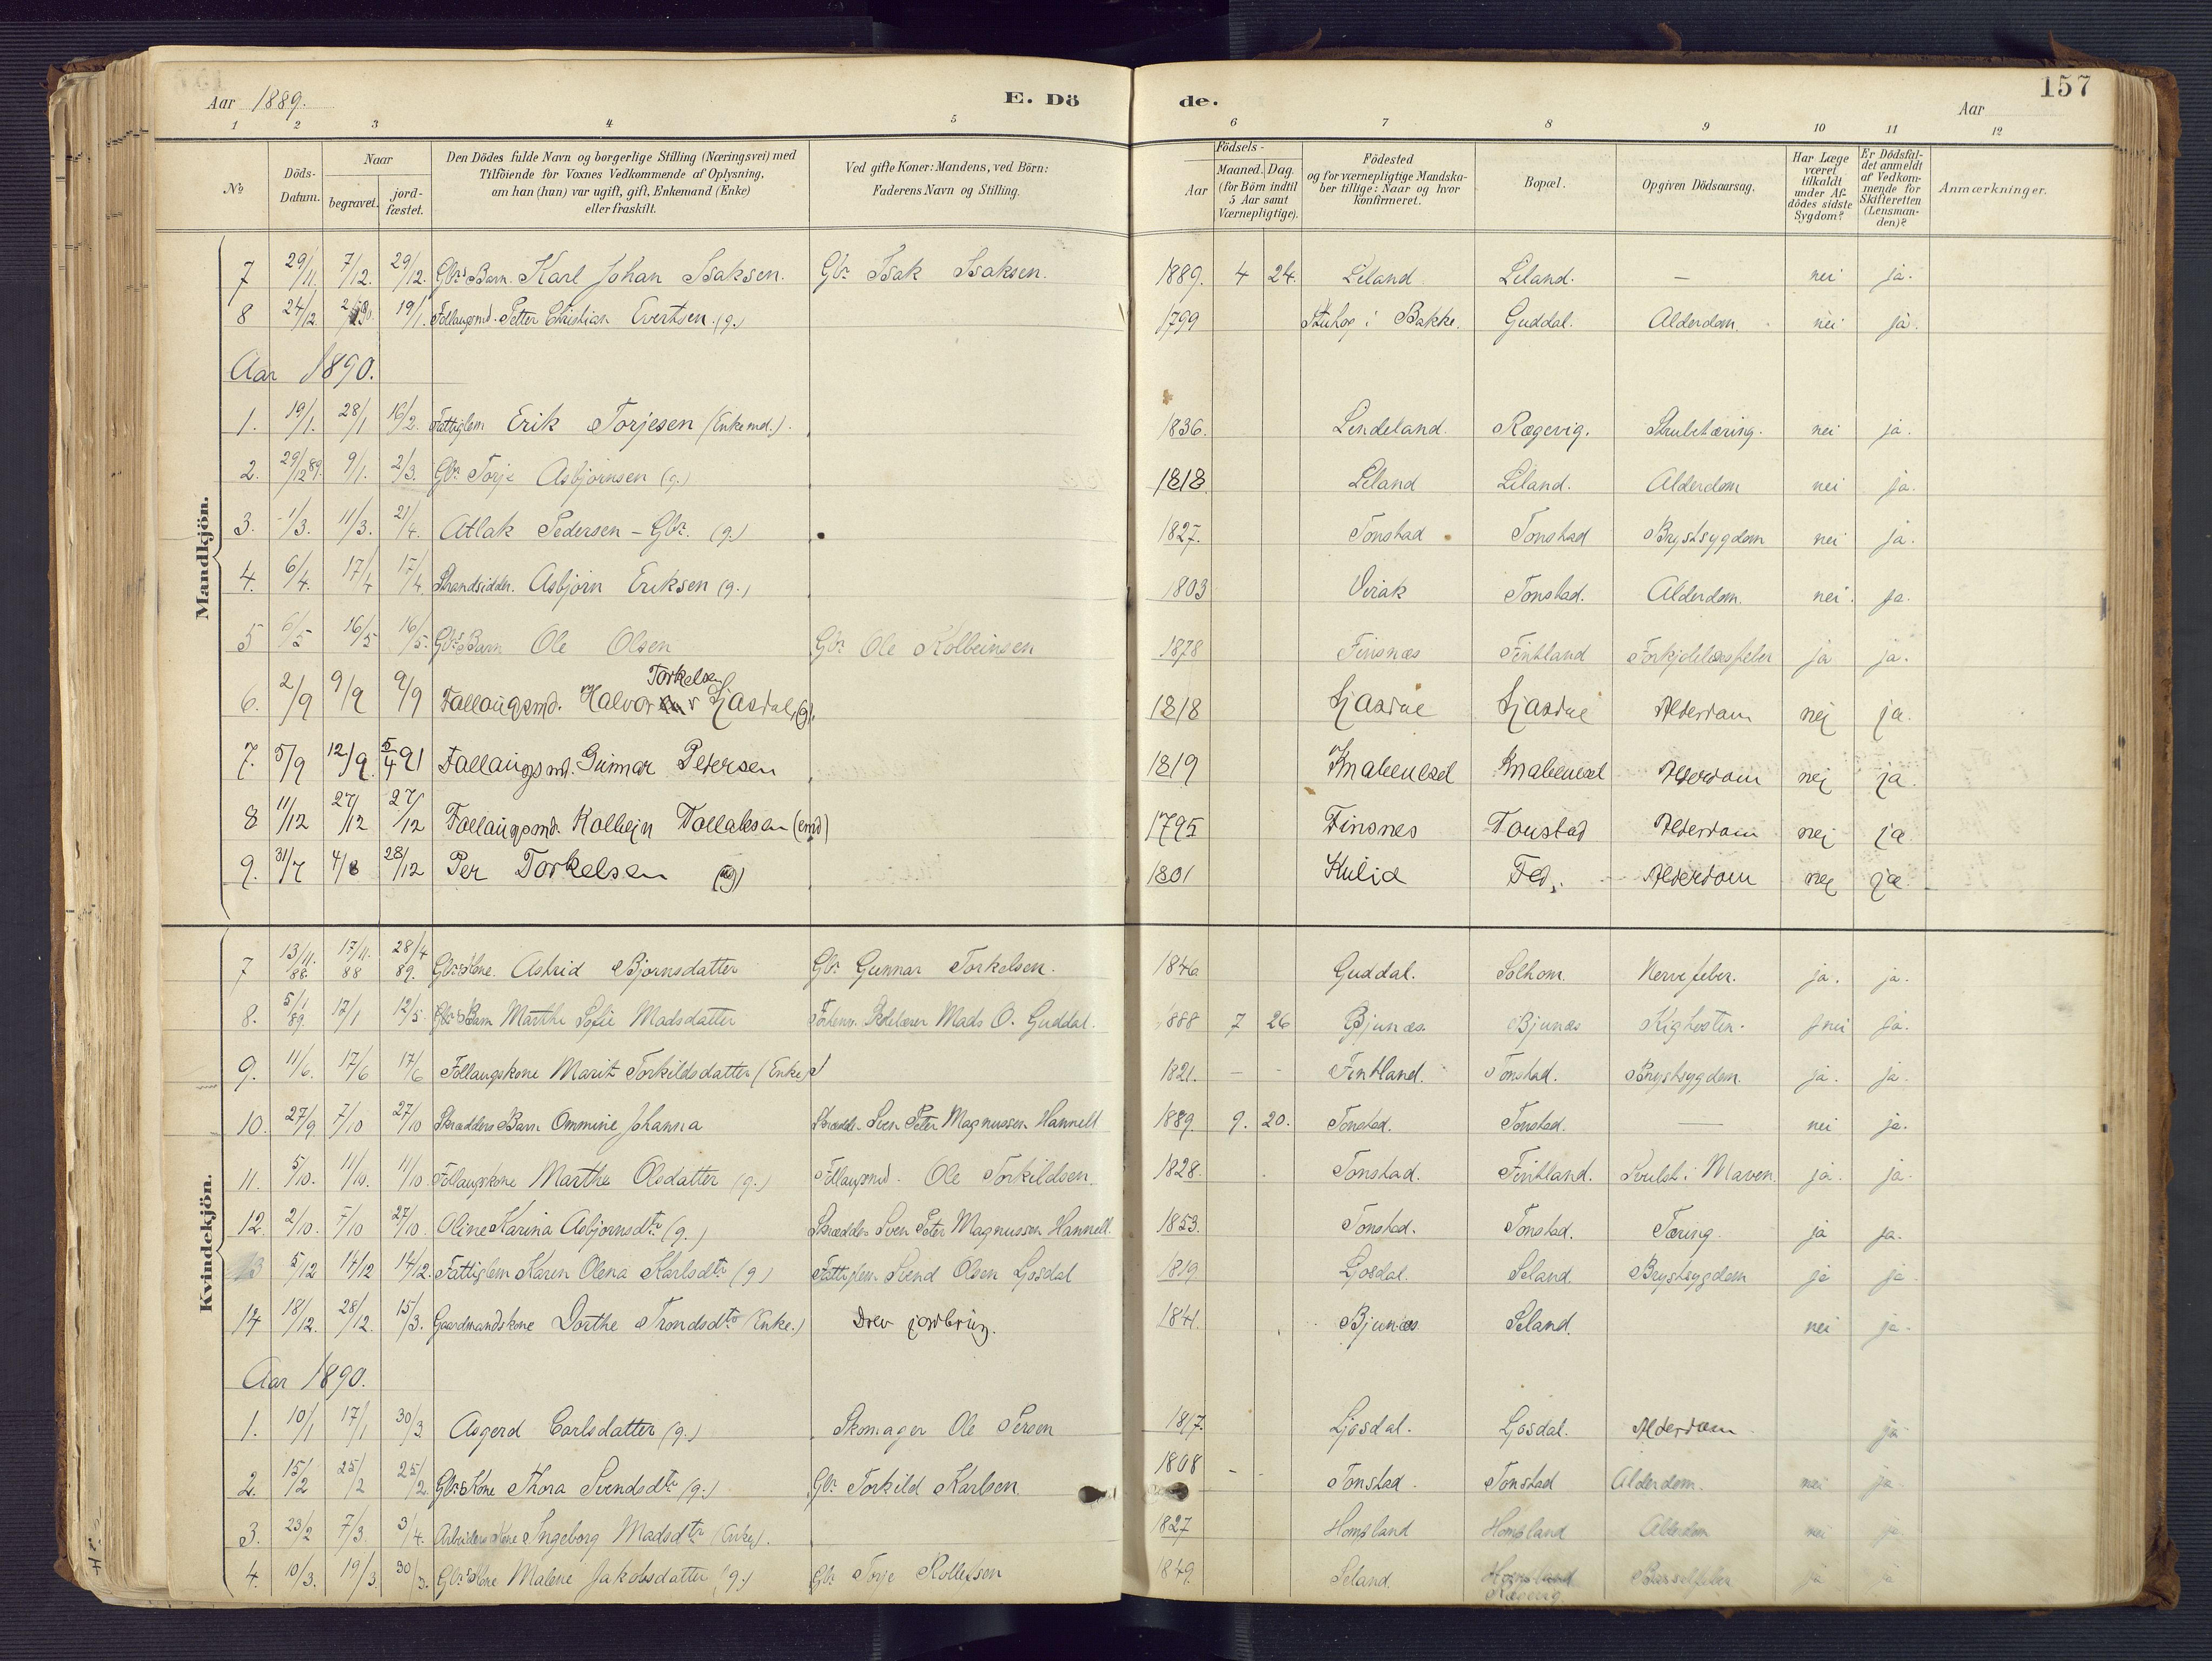 157
Aar 1889. E. Dö de. Aar
1 2 3 4 5 6 7 8 9 10 11 12
No Döds-Datum. Naar begravet. jord-fæstet. Den Dödes fulde Navn og borgerlige Stilling (Næringsvei) med Tilföiende for Voxnes Vedkommende af Oplysning, om han (hun) var ugift, gift, Enkemand (Enke) eller fraskilt. Ved gifte Koner: Mandens, ved Börn: Faderens Navn og Stilling. Födsels- Aar Maaned. Dag. (for Börn indtil 5 Aar samt Værnepligtige). Födested og for værnepligtige Mandskaber tillige: Naar og hvor konfirmeret. Bopæl. Opgiven Dödsaarsag. Har Læge været tilkaldt under Afdödes sidste Sygdom? Er Dödsfaldet anmeldt af Vedkommende for Skifteretten (Lensmanden)? Anmærkninger.
Mandkjön.
7 29/11. 7/12. 29/12. Gbrs Barn. Karl Johan Isaksen. Gbr Isak Isaksen. 1889. 4 24. Leland Leland. — nei ja.
8 24/12. 19/1. Follaugsmd. Petter Christian Evertsen. (g.) 1799 i Bakke. Guddal. Alderdom. nei ja.
Aar 1890.
1. 19/1. 28/1 16/2. Fattiglem Erik Torjesen (Enkemd.). 1836. Lindeland. Rægevig. Strubetæring. nei ja.
2. 29/12 89. 9/1. 2/3. Gbr. Torje Asbjørnsen (g.) 1818. Leland Leland. Alderdom nei ja.
3. 1/3. 11/3. 21/4. Atlak Pedersen – Gbr. (g.) 1827. Tonstad Tonstad Brystsygdom nei ja.
4. 6/4. 17/4 17/4. Strandsidder. Asbjørn Eriksen (g.) 1803 Virak Tonstad. Alderdom. nei. ja.
5 6/5 16/5 16/5. Gbrs Barn Ole Olsen Gbr Ole Kolbeinsen 1878 Finsnæs Fintland Forkjølelsesfeber ja ja.
6. 2/9 9/9 9/9 Follaugsmd. Halvor Torkelsen Ljosdal (g). 1818 Ljosdal Ljosdal Alderdom nej ja.
7. 5/9 12/9. 5/4 91 Follaugsmd. Gunnar Petersen 1819 Knabeused Knabeused Alderdom nej ja.
8 11/12 27/12 27/12 Follaugsmd. Kolbejn Tollaksen (emd) 1795 Finsnes Tonstad Alderdom nej ja
9. 31/7 4/8 28/12 Per Torkelsen (g) 1801 Kulid Fed. Alderdom nej ja.
Kvindekjön.
7 13/11. 88. 17/11. 88 28/4 89. Gbrs Kone. Astrid Bjørnsdatter Gbr Gunnar Torkelsen. 1846 Guddal. Solhom. Nervefeber. ja. ja.
8. 5/1 89. 17/1 12/5. Gbrs Barn Marthe Sofie Madsdatter Forhenv. Skolelærer Mads O. Guddal. 1888 7 26 Bjunæs. Bjunæs Kighosten. nei ja.
9. 11/6. 17/6 17/6 Follaugskone Marit Torkildsdatter (Enke) 1821. – – Fintland. Tonstad. Brystsygdom. ja. ja.
10. 27/9 7/10 27/10 Skrædders Barn Ommine Johanna Skrædder Sven Peter Magnussen Hannell 1889. 9. 20. Tonstad. Tonstad. — nei ja.
11. 5/10. 11/10. 11/10. Follaugskone Marthe Olsdatter (g.) Follaugsmd. Ole Torkildsen. 1828. Tonstad. Fintland. Svulst i Maven. ja. ja.
12. 2/10. 7/10 27/10. Oline Karina Asbjørnsdtr (g.) Skrædder Sven Peter Magnussen Hannell. 1853. Tonstad. Tonstad. Tæring. ja ja.
13 5/12 14/12 14/12. Fattiglem Karen Olena Karlsdtr (g.) Fattiglem Svend Olsen Ljosdal 1819. Ljosdal. Seland. Brystsygdom ja ja
14 18/12. 28/12. 15/3. Gaardmandskone Dorthe Trondsdtr (Enke.) Drev jordbrug. 1841. Bjunæs Seland. nei ja.
Aar 1890.
1. 10/1 17/1 30/3. Asgerd Carlsdatter (g.) Skomager Ole Persen 1817. Ljosdal. Ljosdal. Alderdom ja
2. 15/2 25/2 25/2. Gbrs Kone Thora Svendsdtr (g.) Gbr Torkild Karlsen. 1808 Tonstad. Tonstad Alderdom. nei ja
3. 23/2 7/3. 3/4. Arbeiders Kone Ingeborg Madsdtr (Enke). 1827 Hompland Hompland Alderdom nei ja
4. 10/3. 19/3. 30/3. Gbrs Kone Malene Jakobsdatter (g.) Gbr Torje 1849. Seland. Rægevig. Barselfeber ja ja